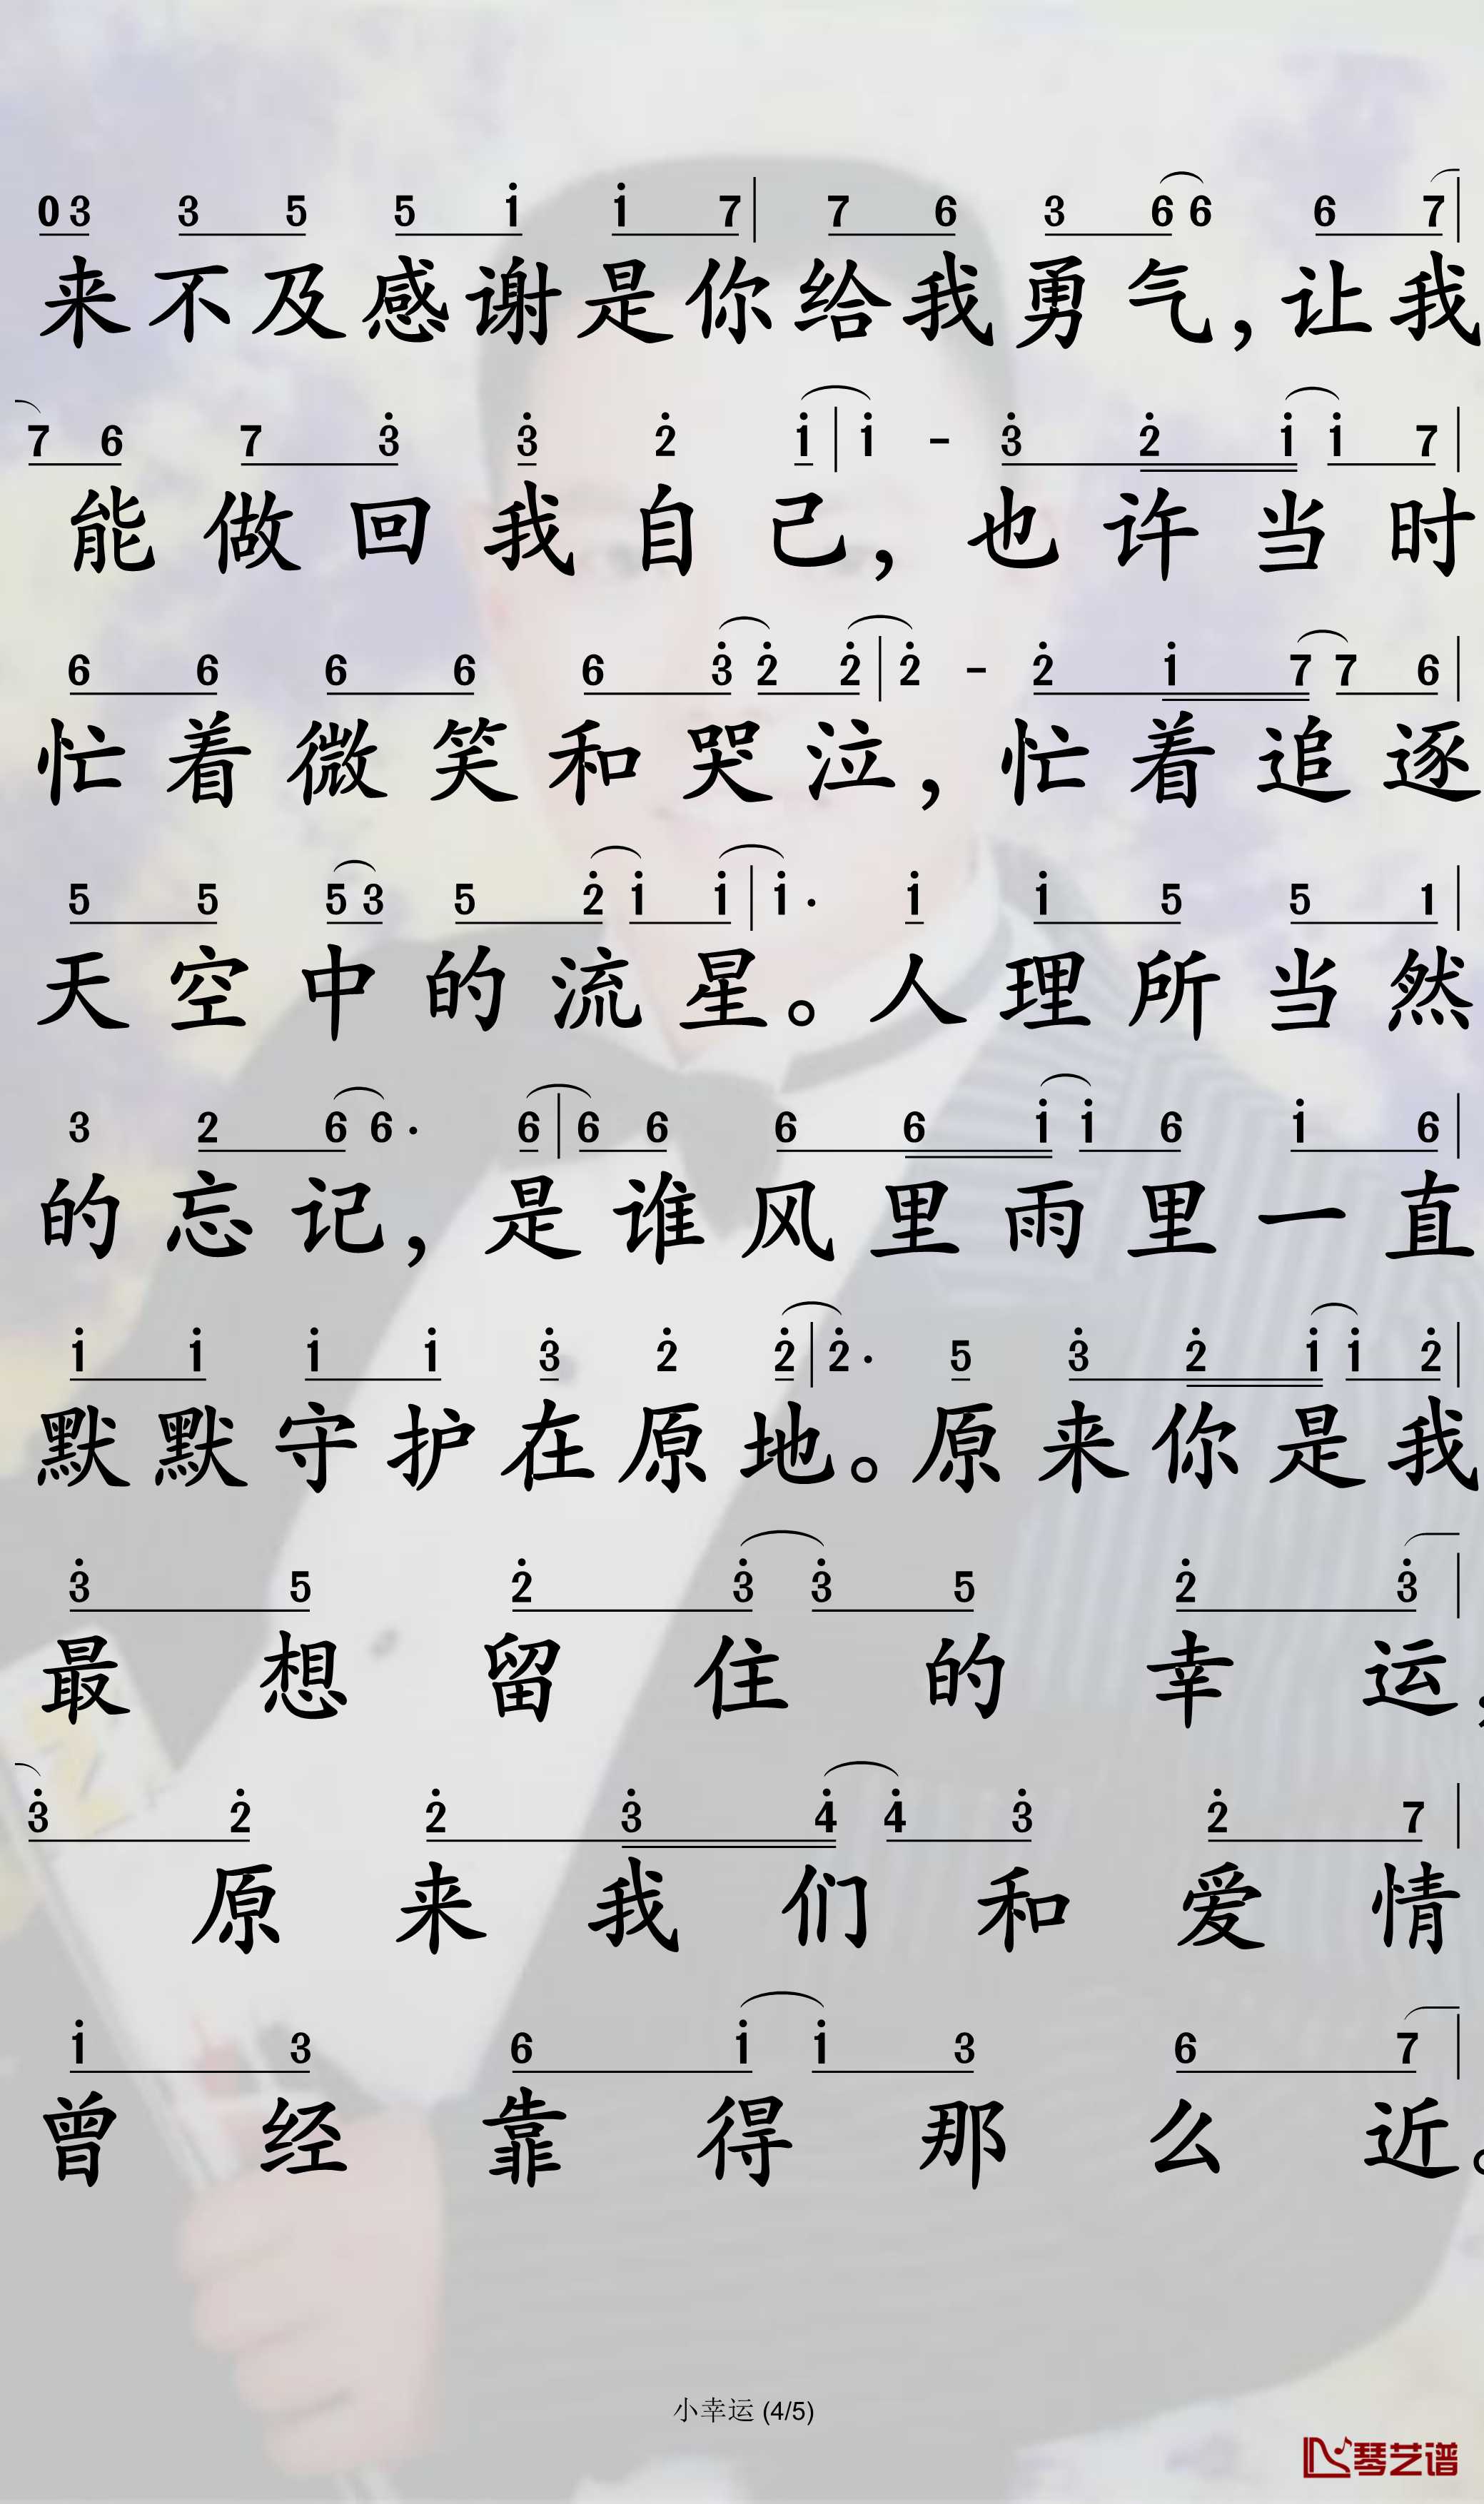 03 3 5 5 i i 7 | 7 6 3 6 6 6 7 |
来不及感谢是你给我勇气,让我
7 6 7 3̇ 3̇ 2̇ i | i - 3̇ 2̇ i i 7 |
能做回我自己,也许当时
6 6 6 6 6 3̇ 2̇ 2̇ | 2̇ - 2̇ i 7 7 6 |
忙着微笑和哭泣,忙着追逐
5 5 5 3 5 2̇ i i | i· i i 5 5 1 |
天空中的流星。人理所当然
3 2 6 6· 6 | 6 6 6 6 i i 6 i 6 |
的忘记,是谁风里雨里一直
i i i i 3̇ 2̇ 2̇ | 2̇· 5 3̇ 2̇ i i 2̇ |
默默守护在原地。原来你是我
3̇ 5 2̇ 3̇ 3̇ 5 2̇ 3̇ |
最想留住的幸运,
3̇ 2̇ 2̇ 3̇ 4̇ 4̇ 3̇ 2̇ 7 |
原来我们和爱情
i 3 6 i i 3 6 7 |
曾经靠得那么近。
小幸运 (4/5)
琴艺谱